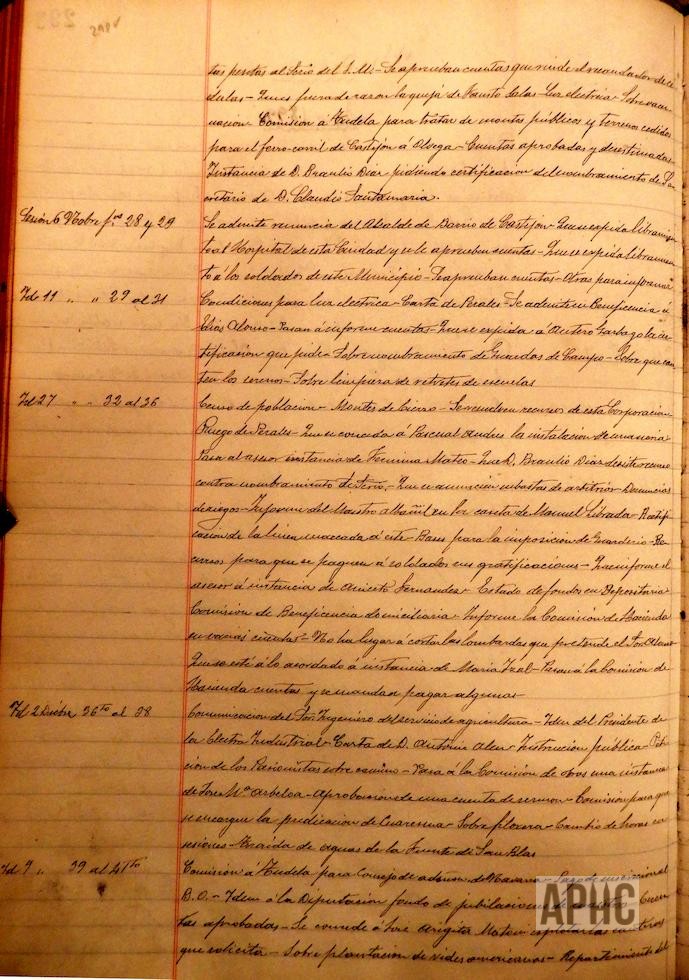 tas pesetas al Socio del S. M.- Se aprueban cuentas que rinde el recaudador de cé
dulas- Informe la queja de Fausto Salas- Luz eléctrica- Sobre vacu
nación Comision á Tudela para tratar de montes públicos y terrenos cedidos
para el ferro-carril de Castejon á Olvega- Cuentas aprobadas y desestimadas
Instancia de D. Braulio Diaz pidiendo certificacion del nombramiento de Se
cretario de D. Claudio Santamaria.
Sesión 6 Nobre fos 28 y 29
Se admite renuncia del Alcalde de Barrio de Castejon- Que se expida libramien
to al Hospital de esta Ciudad y se le aprueban cuentas- Que se expida libramien
to á los soldados de este Municipio- Se aprueban cuentas- Otras para informe
Id 11 " " 29 al 31
Condiciones para luz electrica- Carta de Perales- Se admite en Beneficencia á
Alonso- Pasan á informe cuentas- Que se expida á Antero Garbayo la cer
tificacion que pide- Sobre nombramiento de Guardas de Campo- Sobre que can
ten los serenos- Sobre limpieza de retretes de escuelas
Id 27 " " 32 al 36
Censo de poblacion- Montes de Cierzo- Se resuelven recursos de esta Corporacion
Ruego de Perales- Que se conceda á Pascual Andres la instalacion de una noria
Pasa al asesor instancia de Fermina Mateo- Que D. Braulio Diaz desiste recurso
contra nombramiento de Srio.- Que se anuncien subastas de arbitrios- Denuncias
de riegos- Informe del Maestro albañil en la caseta de Manuel Librada- Ratifi
cacion de la linea marcada á este- Bases para la imposicion de Guarderio- Re
cursos para que se paguen á soldados sus gratificaciones- Que informe el
asesor á instancia de Aniceto Fernandez- Estado de fondos en Depositaria
Comision de Beneficencia domiciliaria- Informe la Comision de Hacienda
en varias cuentas- No ha lugar á cortar las lombardas que pretende el
Que se esté á lo acordado á instancia de Maria Izal- Pasan á la Comision de
Hacienda cuentas y se mandan pagar algunas
Id 2 Dicbre 36to al 38
Comunicacion del Sor. Ingeniero del servicio de agricultura- Idem del Presidente de
la Electra Industrial- Carta de D. Antonio Aleu- Instruccion pública- Peti
cion de los Pasionistas sobre camino- Pasa á la Comision de obras una instancia
de Jose Ma Arbeloa- Aprobacion de una cuenta de sermon- Comision para que
se encargue la predicacion de Cuaresma- Sobre filoxera- Cambio de horas en
sesiones- Traida de aguas de la Fuente de San Blas
Id 9 " 39 al 41to
Comision á Tudela para Consejo de admon. de Navarra- Pago de suscricion al
B. O.- Idem á la Diputacion fondo de jubilaciones de maestros- Cuen
tas aprobadas- Se concede á Jose Mateo explotar las canteras
que solicita- Sobre plantacion de vides americanas- Repartimiento del
APHC